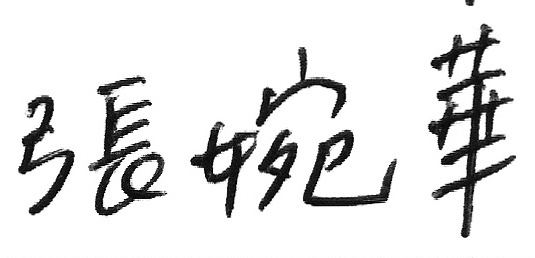 張婉華